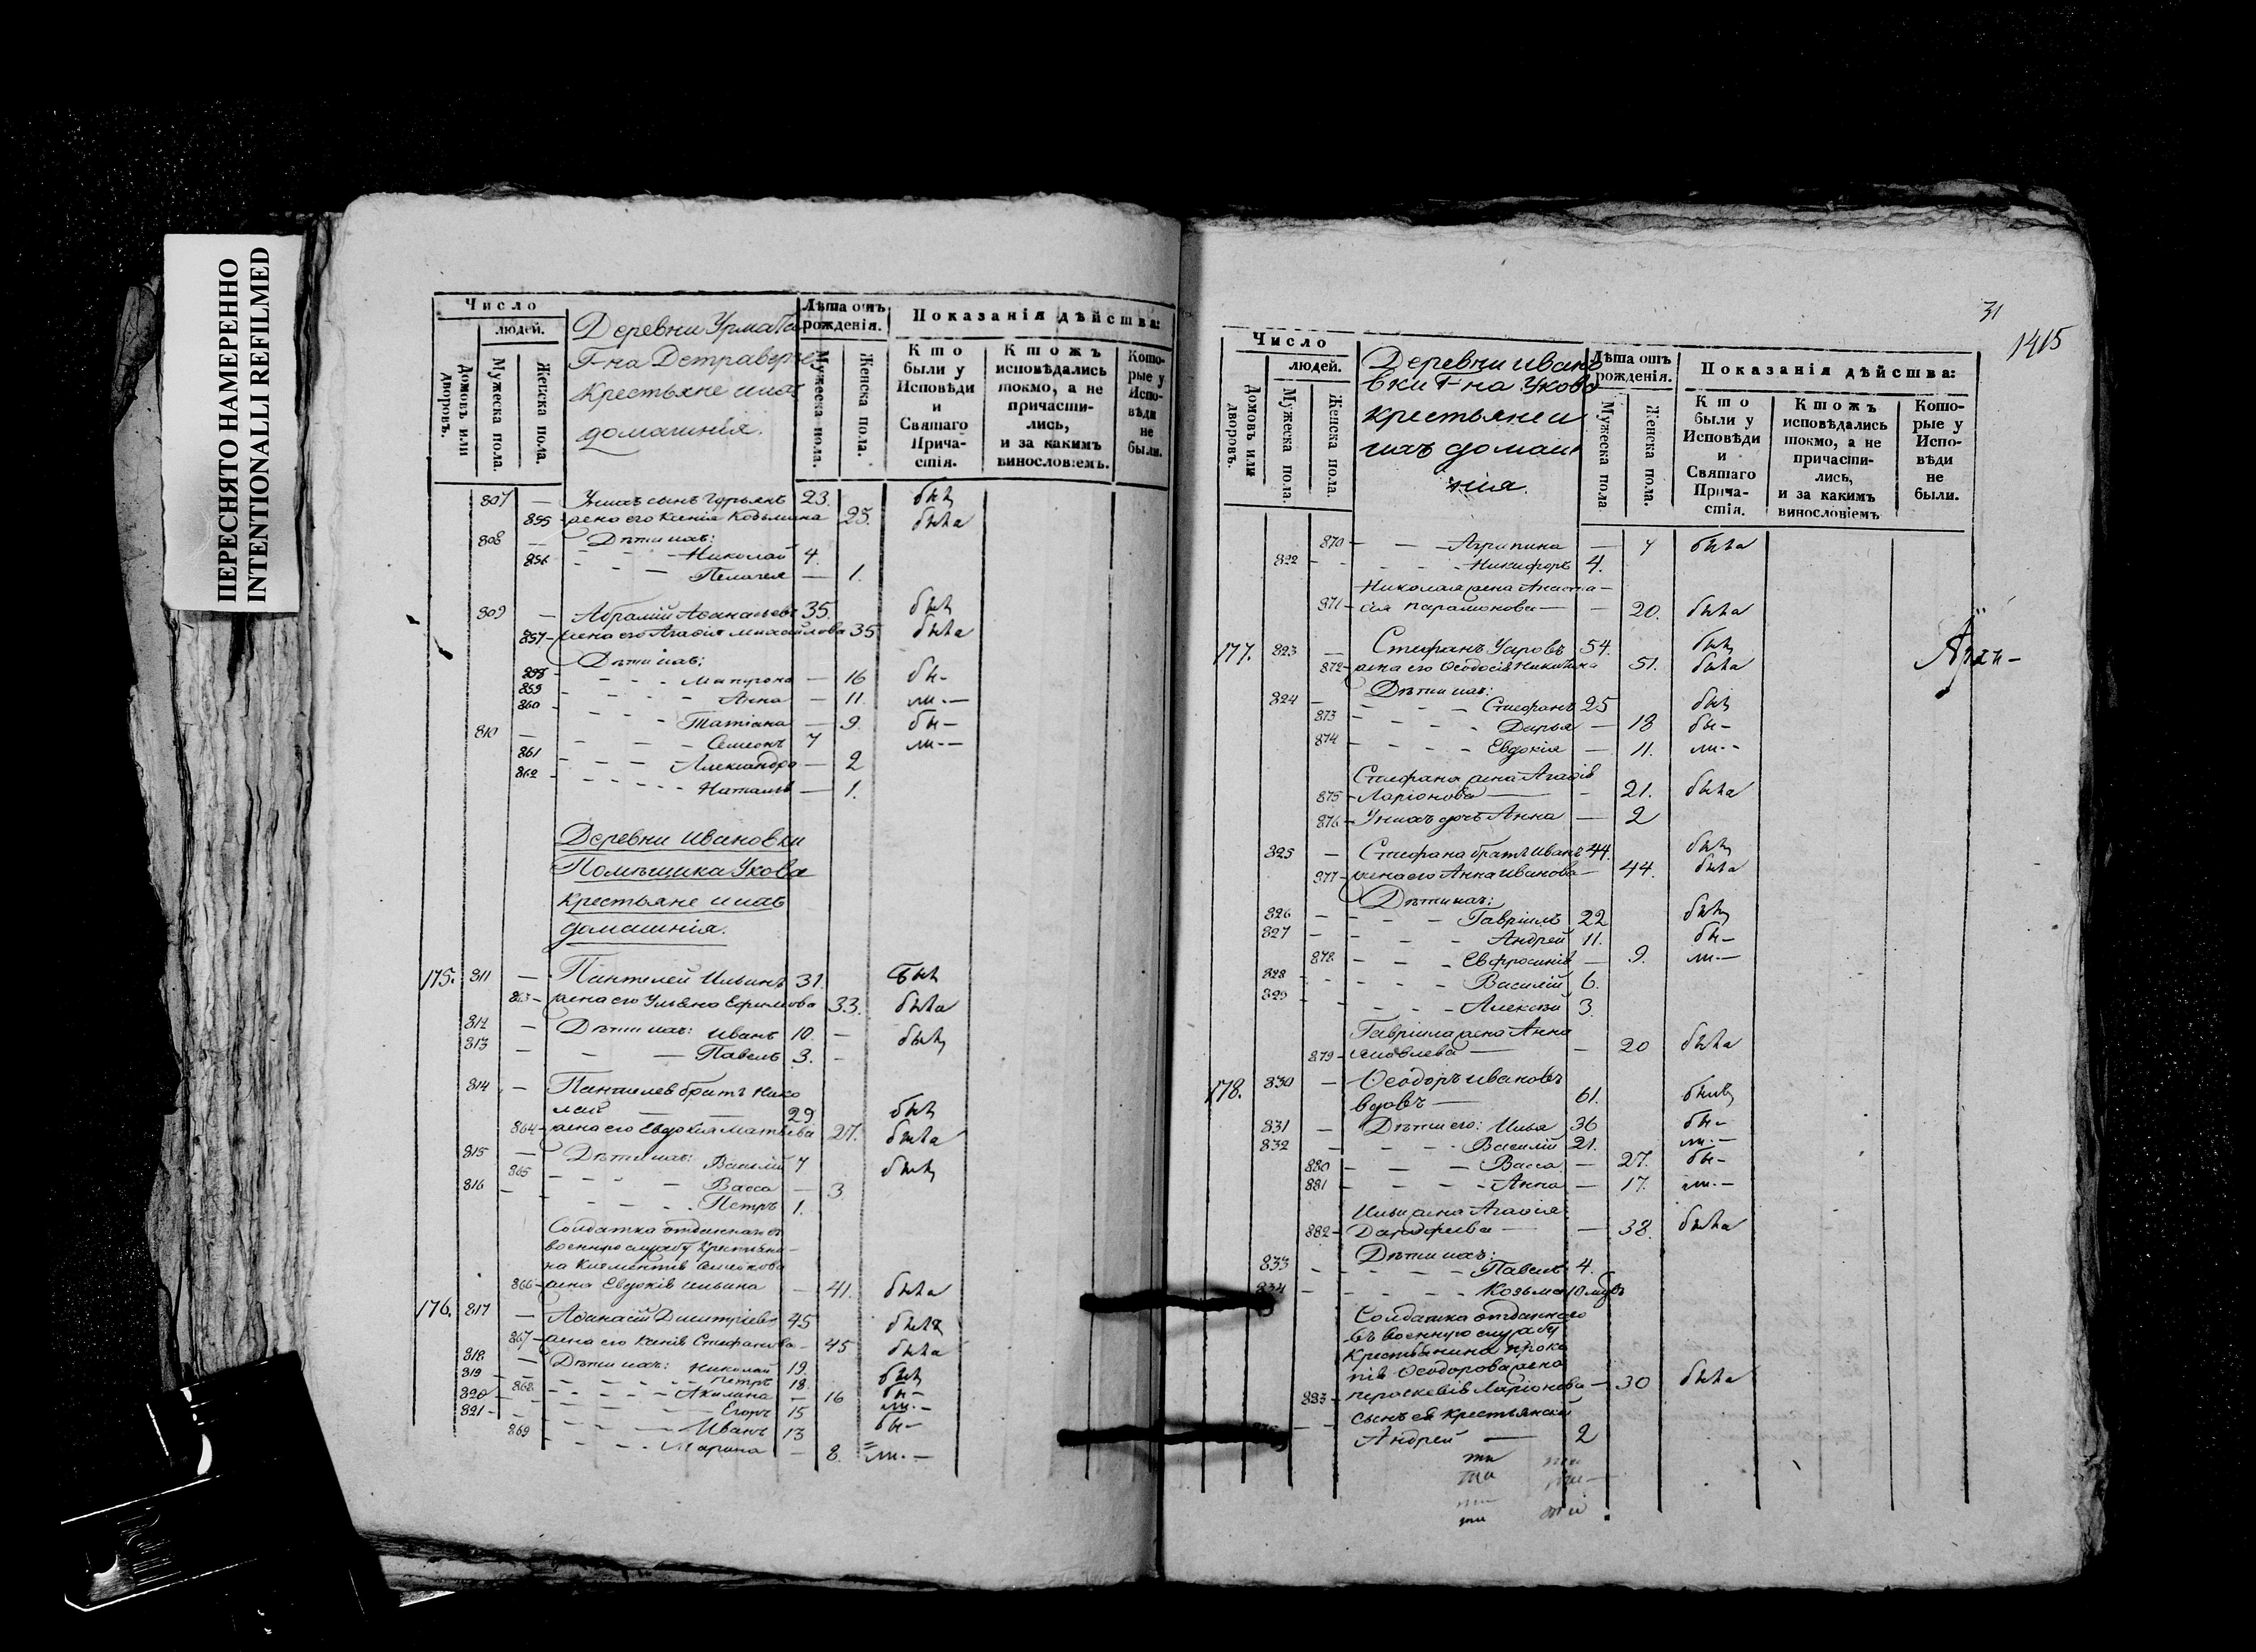 ПЕРЕСНЯТО НАМЕРЕННО
INTENTIONALLI REFILMED
Число
людей.
Домовъ или дворовъ.
Мужеска пола.
Женска пола.
Деревни Урмата
Г-на
Крестьяне и ихъ
домашнія.
Лѣта отъ рожденія.
Мужеска пола.
Женска пола.
Показанія дѣйства:
Кто были у Исповѣди и Святаго Причастія.
Ктожъ исповѣдались токмо, а не причастились, и за какимъ винословіемъ.
Которые у Исповѣди не были.
807 — У нихъ сынъ 23. былъ
855 — жена его Ксенія Козьмина 25. была
808 — Дѣти ихъ:
- - - Николай 4.
856 - - — Пелагея — 1.
809 — Абрамій Аѳанасьевъ 35. былъ
857 — жена его Агаѳія Михайлова 35 была
Дѣти ихъ:
858 - - - Матрона — 16 бы-
859 - - - Анна — 11. ли.—
860 - - - Татіана — 9. бы—
810 — — - Семенъ 7 ли.—
861 - — — Александра — 2
862 - - - - Наталья — 1.
Деревни Ивановки
Помѣщика Ухова
крестьяне и ихъ
домашнія.
175. 811 — Пантелей Ильинъ 31. былъ
863 — жена его Ульяна Ефимова 33. была
812 — Дѣти ихъ: Иванъ 10. — былъ
813 — - — Павелъ 3. -
814 — Пантелея братъ Нико
лай — — 29 былъ
864 — жена его Евдокія Матвѣева 27. была
815 — Дѣти ихъ: Василій 7 былъ
865 - - - — Васса — 3.
816 — - - - Петръ 1.
Солдатка отданнаго въ
военную службу Крестьяни-
на Климентія
866 — жена Евдокія Ильина — 41. была
176. 817 — Аѳанасій Дмитріевъ 45 былъ
867 — жена его Ксенія Стефанова — 45 была
818 — Дѣти ихъ: Николай 19. былъ
819 — - - - Петръ 18.
868 - - - - Акилина — 16 бы-
820 — — Егоръ 15 ли.—
821 — - - — Иванъ 13 бы—
869 - - - Марина — 8. ли.—
31
1415
Число
людей.
Домовъ или дворовъ.
Мужеска пола.
Женска пола.
Деревни Ивано
вки Г-на Ухова
крестьяне и
ихъ домаш
нія.
Лѣта отъ рожденія.
Мужеска пола
Женска пола.
Показанія дѣйства:
Кто были у Исповѣди и Святаго Причастія.
Ктожъ исповѣдались токмо, а не причастились, и за какимъ винословіемъ
Которые у Исповѣди не были.
870 — — — Агрипина — 7 была
822 - - - - Никифоръ 4.
Николая жена Анаста-
871 — сія Парамонова — — 20. была
177. 823 — Стефанъ Уаровъ 54. былъ
872 — жена его Ѳеодосія Никитина 51. была
Дѣти ихъ:
824 — - - — Стефанъ 25 былъ
873 — - - - Дарья — 18 бы-
874 — - - - Евдокія — 11. ли.-
Стефана жена Агаѳія
875 — Ларіонова — - 21. была
876 — У нихъ дочь Анна — 2
825 — Стефана братъ Иванъ 44. былъ
877 — жена его Анна Иванова — 44. была
Дѣти ихъ:
826 — — - — Гавріилъ 22 былъ
827 — - - - Андрей 11. бы-
878 — - - - Евфросинія — 9. ли.—
828 - - - - Василій 6.
829 - - - - Алексѣй 3.
Гавріила жена Анна
879 — Яковлева — - 20 была
178. 830 — Ѳеодоръ Ивановъ
вдовъ — 61. былъ
831 — Дѣти его: Илья 36 бы-
832 — - - - Василій 21. ли.—
880 — - - — Васса — 27. бы-
881 — - - - Анна — 17. ли.—
Ильи жена Агаѳія
882 — — — 38. была
Дѣти ихъ:
833 — - - - Павелъ 4.
834 — - - - Козьма
Солдатка отданнаго
въ военную службу
Крестьянина Проко
пія Ѳеодорова жена
883 — Параскевія Ларіонова — 30 была
сынъ ея крестьянскій
Андрей — 2